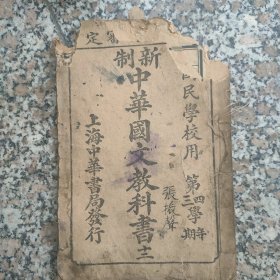 定
國民學校用
第四學年
三學期
張振聲
新制
中華國文教科書
十二
上海中華書局發行